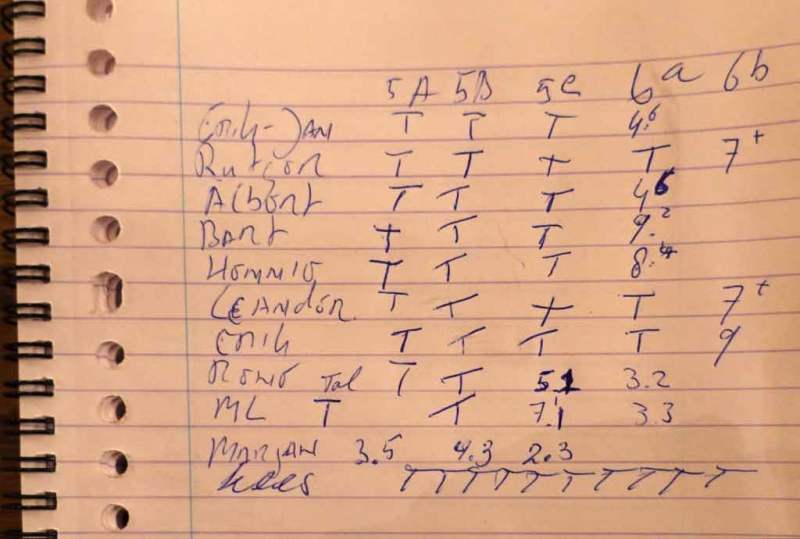 5A 5B 5C 6a 6b
Erik-Jan T T T 4.6
Rutger T T + T 7+
Albert T T T 46
Bart + T T 9.2
Hemmie T T T 8.4
Leander T T + T 7+
Erik T T T T 9
T T 5.1 3.2
ML T T 7.1 3.3
Marjan 3.5 4.3 2.3
Kees T T T T T T T T T